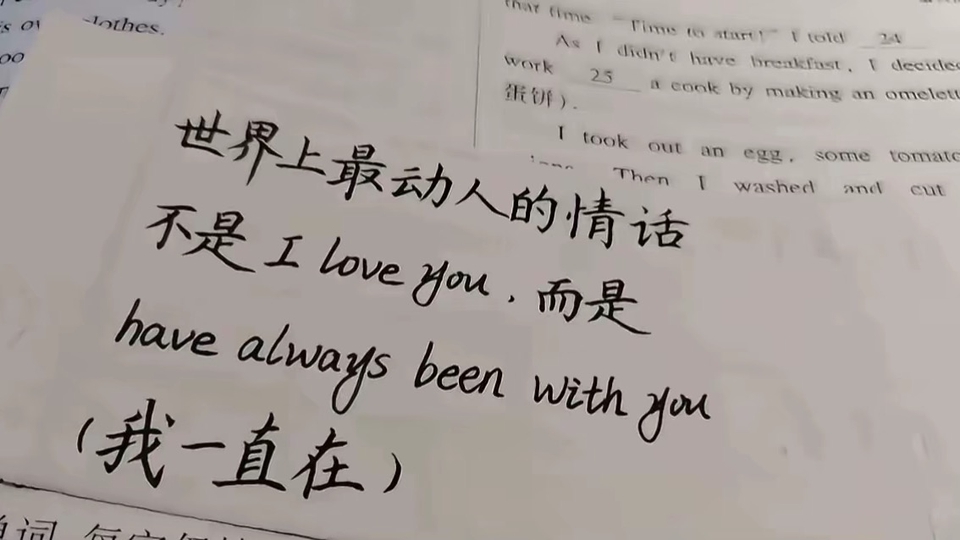 lothes.
that time. "Time to start!" I told 24
As I didn't have breakfast, I decided
work 25 a cook by making an omelett
蛋饼).
I took out an egg, some tomato
Then I washed and cut
世界上最动人的情话
不是 I love you, 而是
have always been with you
(我一直在)